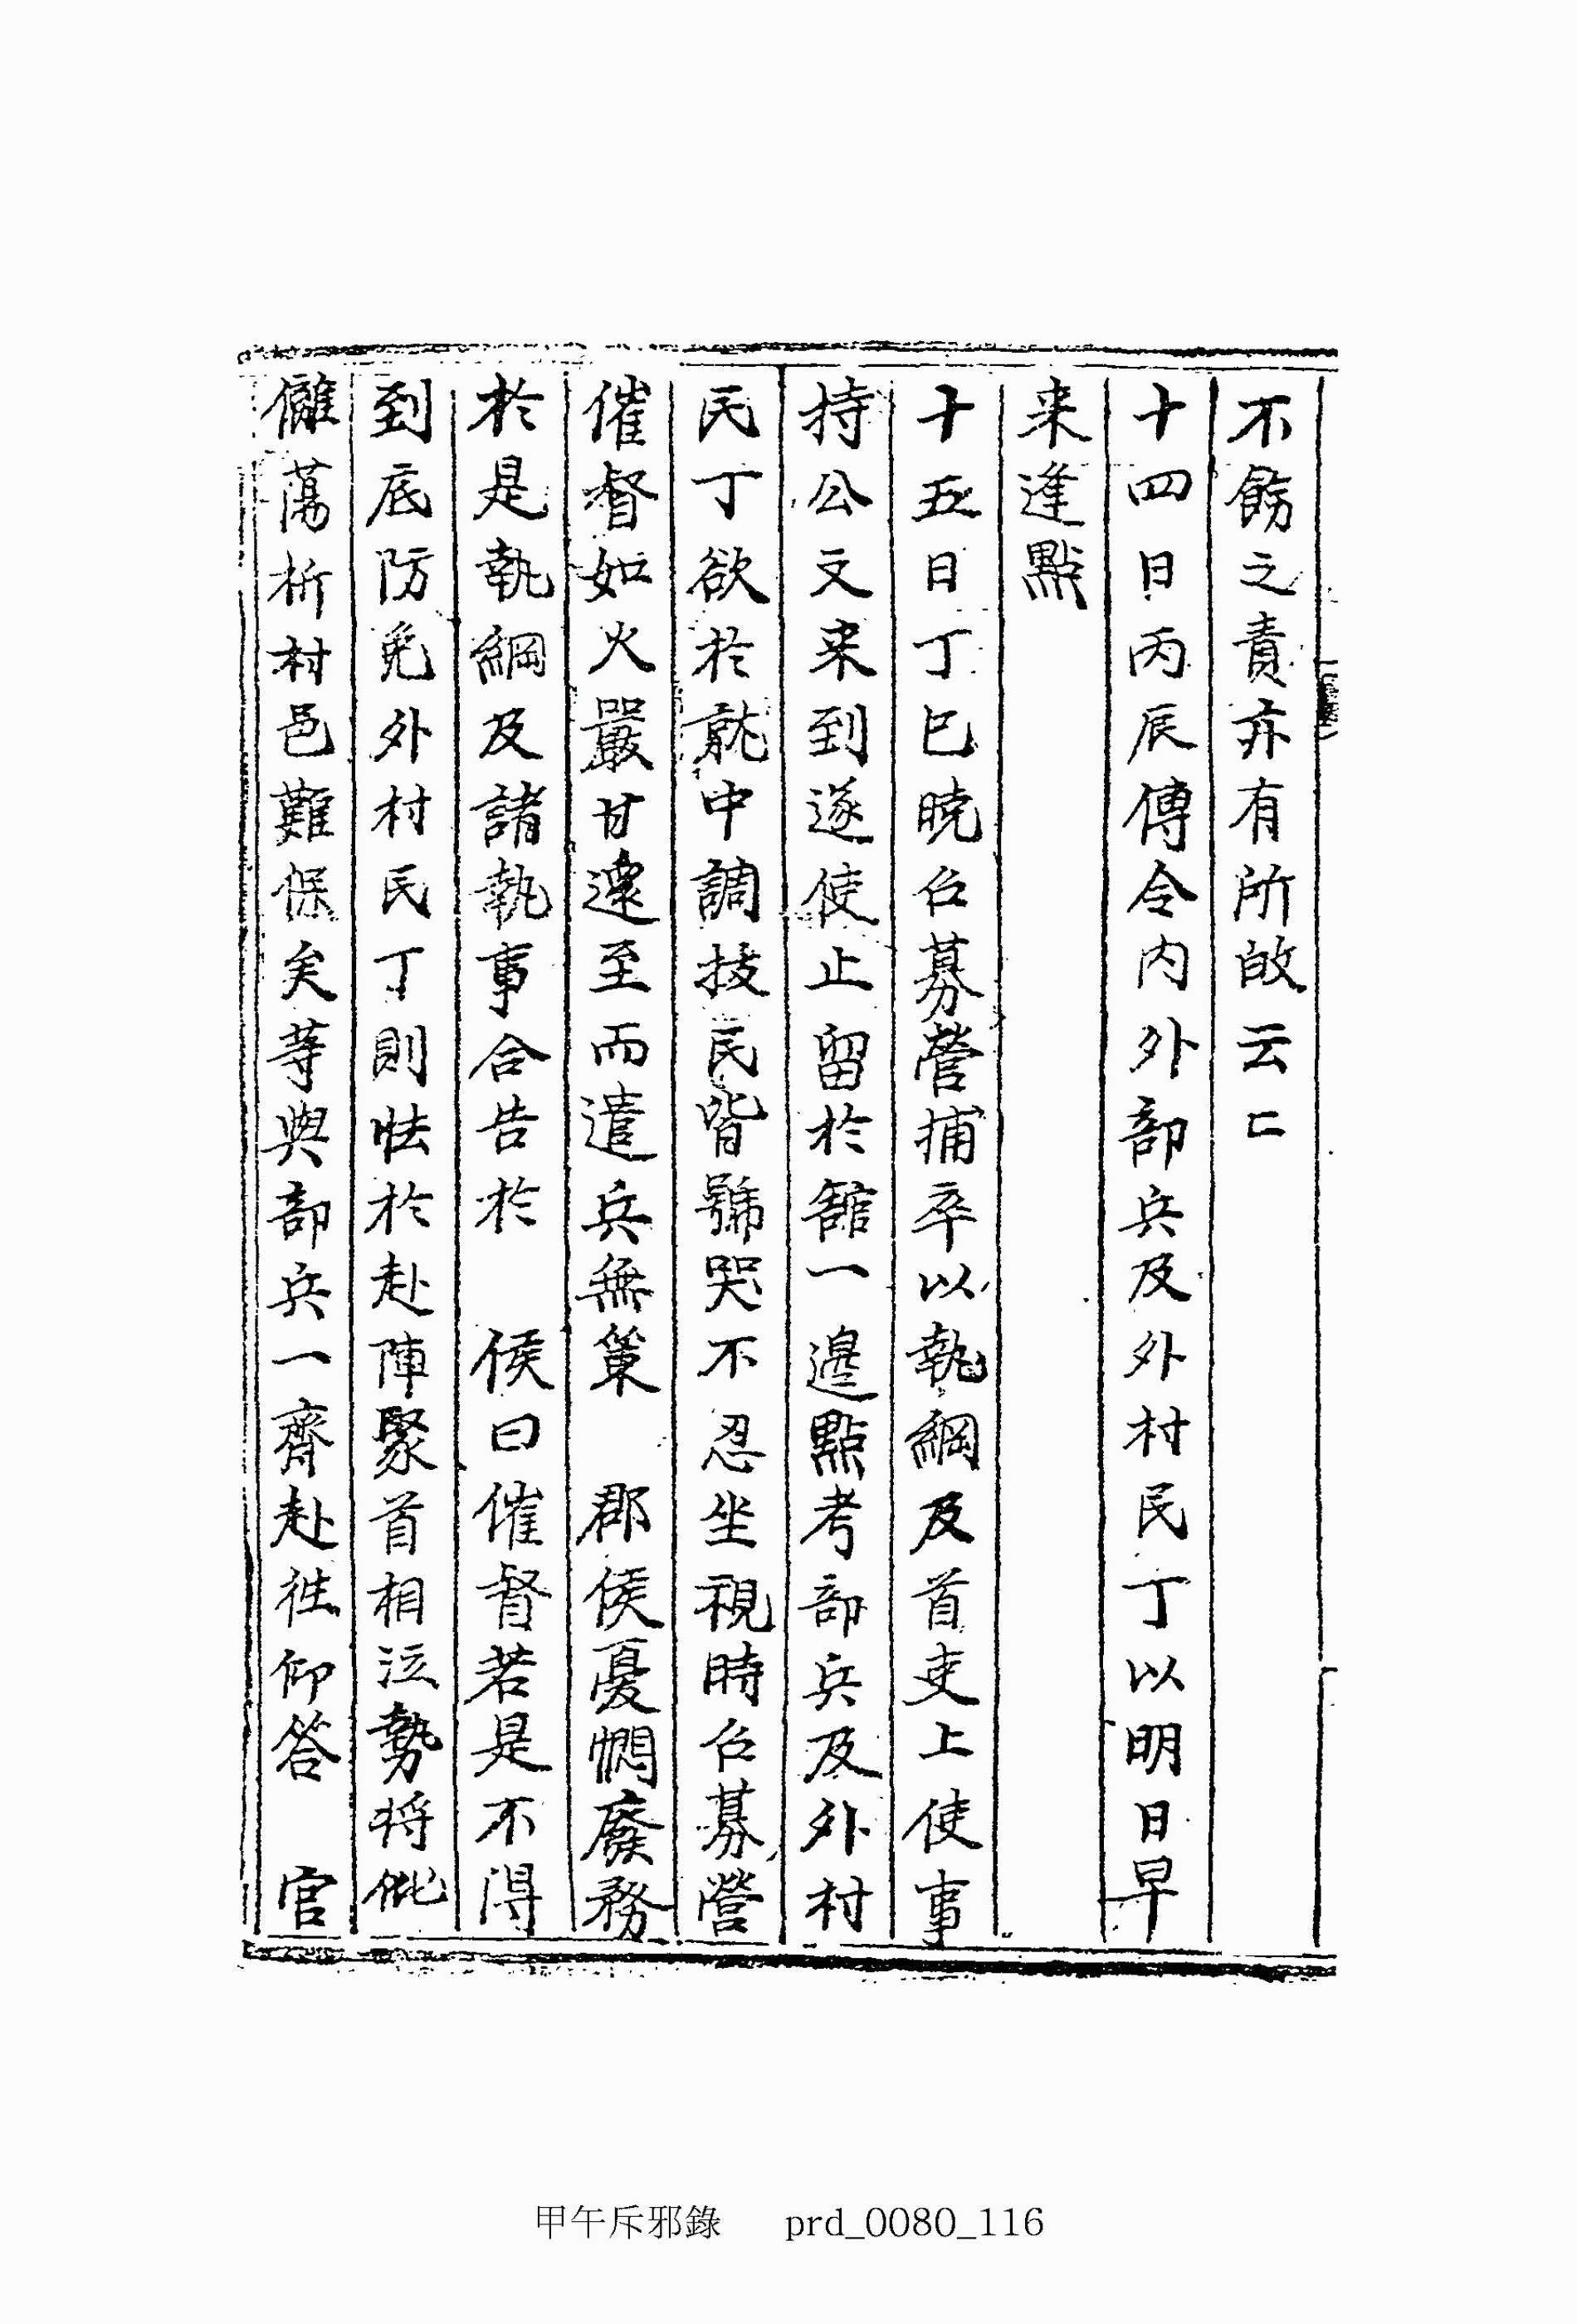 不飭之責亦有所故云〻
十四日丙辰傳令內外部兵及外村民丁以明日早
来逢點
十五日丁巳曉召募營捕卒以執綱及首吏上使事
持公文来到遂使止留於舘一邊點考部兵及外村
民丁欲於就中調拔民皆號哭不忍坐視時召募營
催督如火嚴甘遝至而遣兵無策　郡侯憂憫廢務
於是執綱及諸執事合告於　侯曰催督若是不得
到底防免外村民丁則怯於赴陣聚首相泣勢将仳
離蕩析村邑難保矣等與部兵一齊赴徃仰答　官
甲午斥邪錄　prd_0080_116